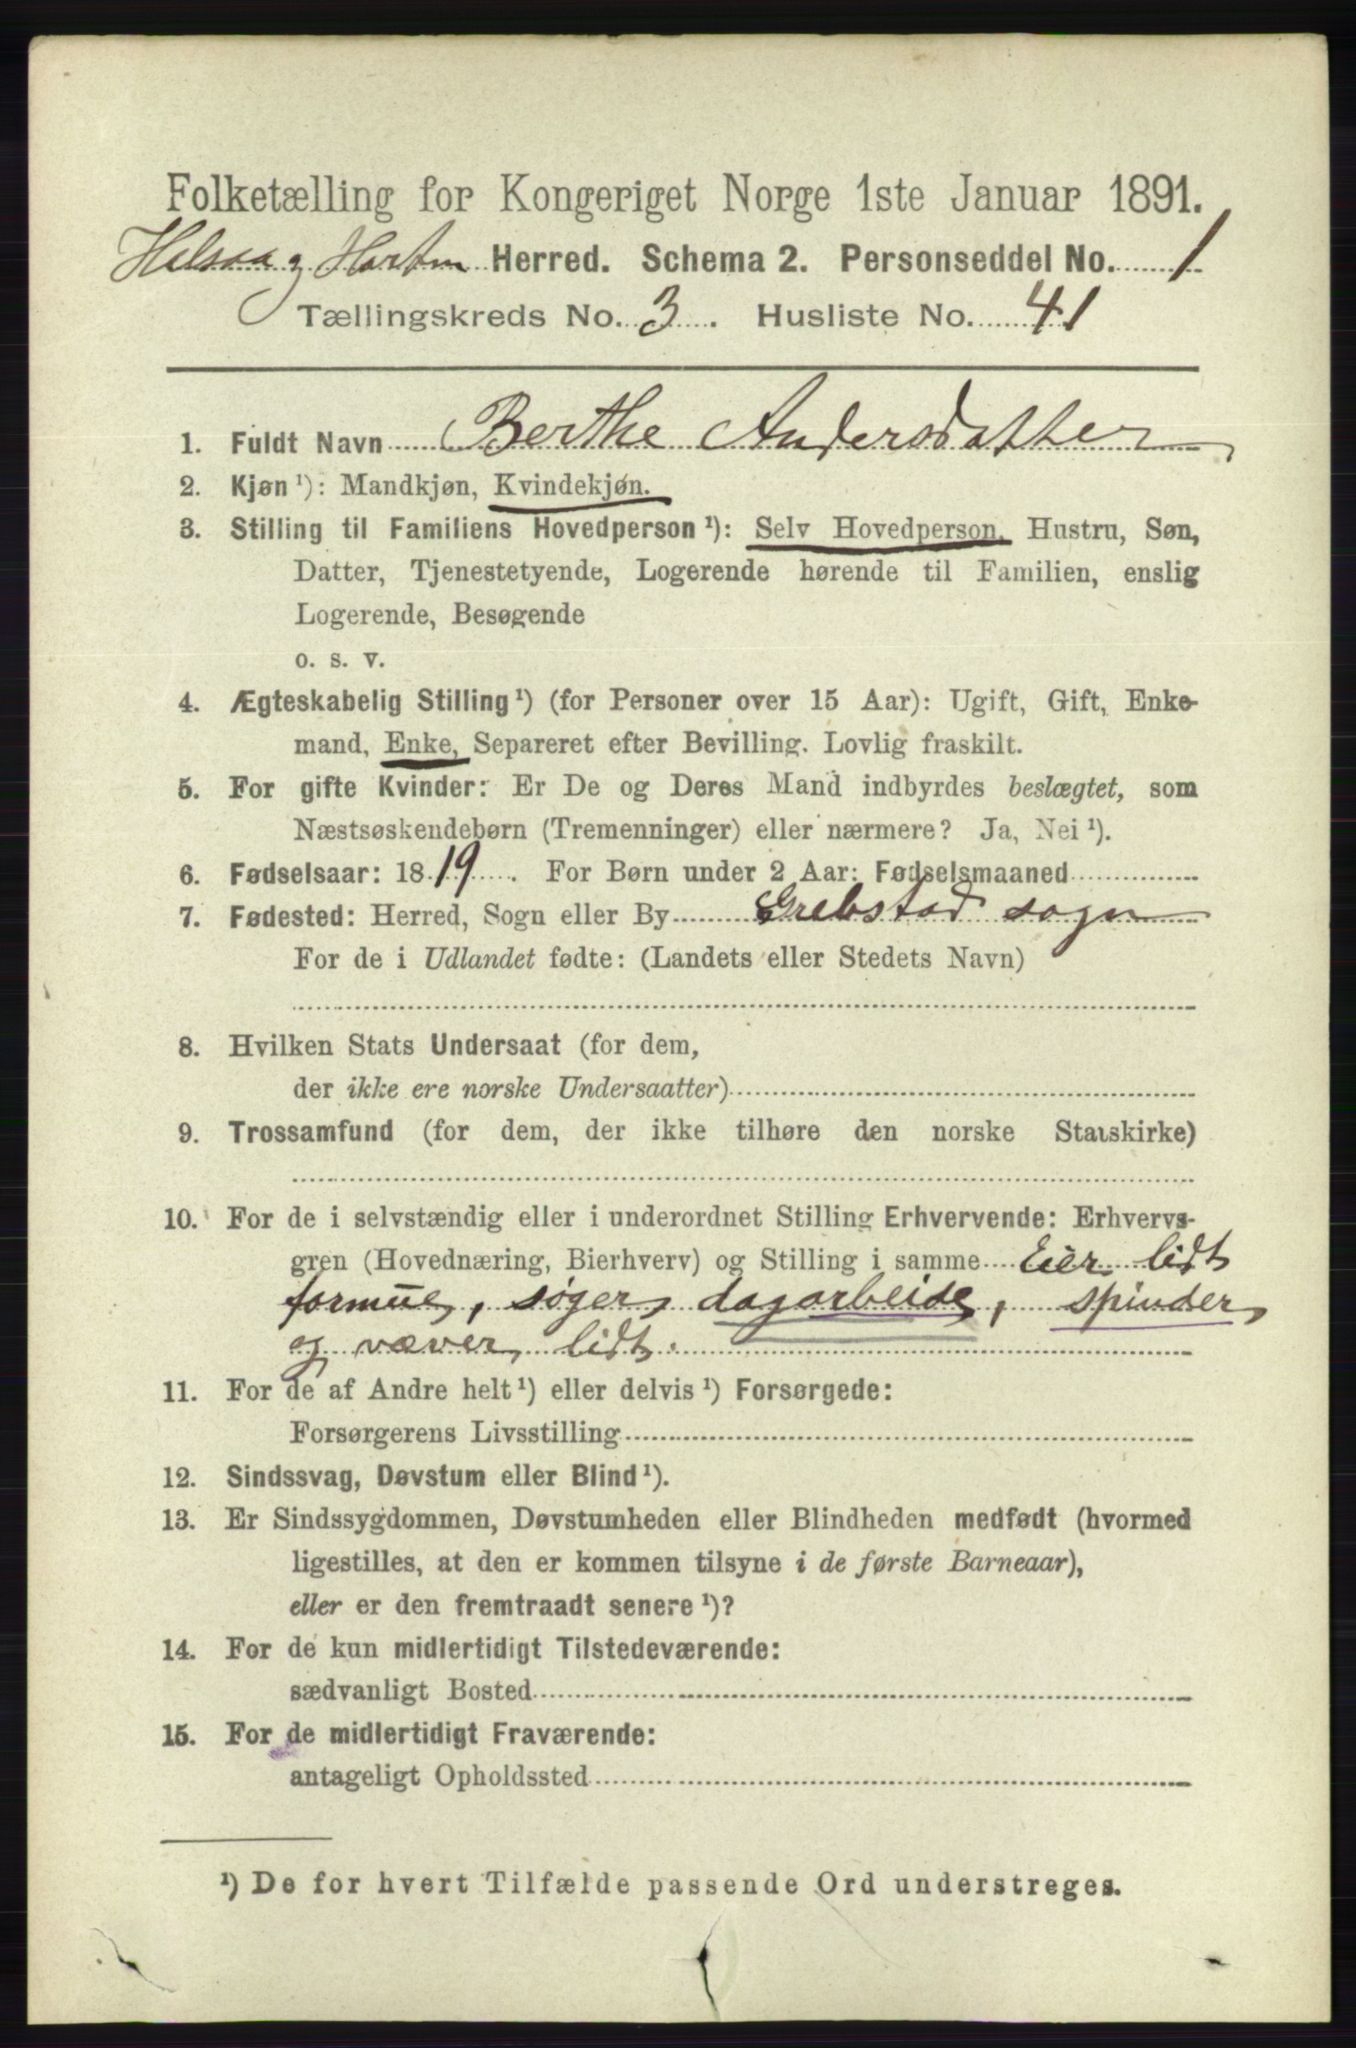 Folketælling for Kongeriget Norge 1ste Januar 1891.
Halsaa og Hartm Herred. Schema 2. Personseddel No. 1
Tællingskreds No. 3. Husliste No. 41
1. Fuldt Navn Berthe Andersdatter
2. Kjøn ¹): Mandkjøn, Kvindekjøn.
3. Stilling til Familiens Hovedperson ¹): Selv Hovedperson, Hustru, Søn,
Datter, Tjenestetyende, Logerende hørende til Familien, enslig
Logerende, Besøgende
o. s. v.
4. Ægteskabelig Stilling ¹) (for Personer over 15 Aar): Ugift, Gift, Enke-
mand, Enke, Separeret efter Bevilling. Lovlig fraskilt.
5. For gifte Kvinder: Er De og Deres Mand indbyrdes beslægtet, som
Næstsøskendebørn (Tremenninger) eller nærmere? Ja, Nei ¹).
6. Fødselsaar: 1819. For Børn under 2 Aar: Fødselsmaaned
7. Fødested: Herred, Sogn eller By Grebstad sogn
For de i Udlandet fødte: (Landets eller Stedets Navn)
8. Hvilken Stats Undersaat (for dem,
der ikke ere norske Undersaatter)
9. Trossamfund (for dem, der ikke tilhøre den norske Statskirke)
10. For de i selvstændig eller i underordnet Stilling Erhvervende: Erhvervs-
gren (Hovednæring, Bierhverv) og Stilling i samme Eier lidt
formue, søger dagarbeide, spinder
og væver lidt.
11. For de af Andre helt ¹) eller delvis ¹) Forsørgede:
Forsørgerens Livsstilling
12. Sindssvag, Døvstum eller Blind ¹).
13. Er Sindssygdommen, Døvstumheden eller Blindheden medfødt (hvormed
ligestilles, at den er kommen tilsyne i de første Barneaar),
eller er den fremtraadt senere ¹)?
14. For de kun midlertidigt Tilstedeværende:
sædvanligt Bosted
15. For de midlertidigt Fraværende:
antageligt Opholdssted
¹) De for hvert Tilfælde passende Ord understreges.